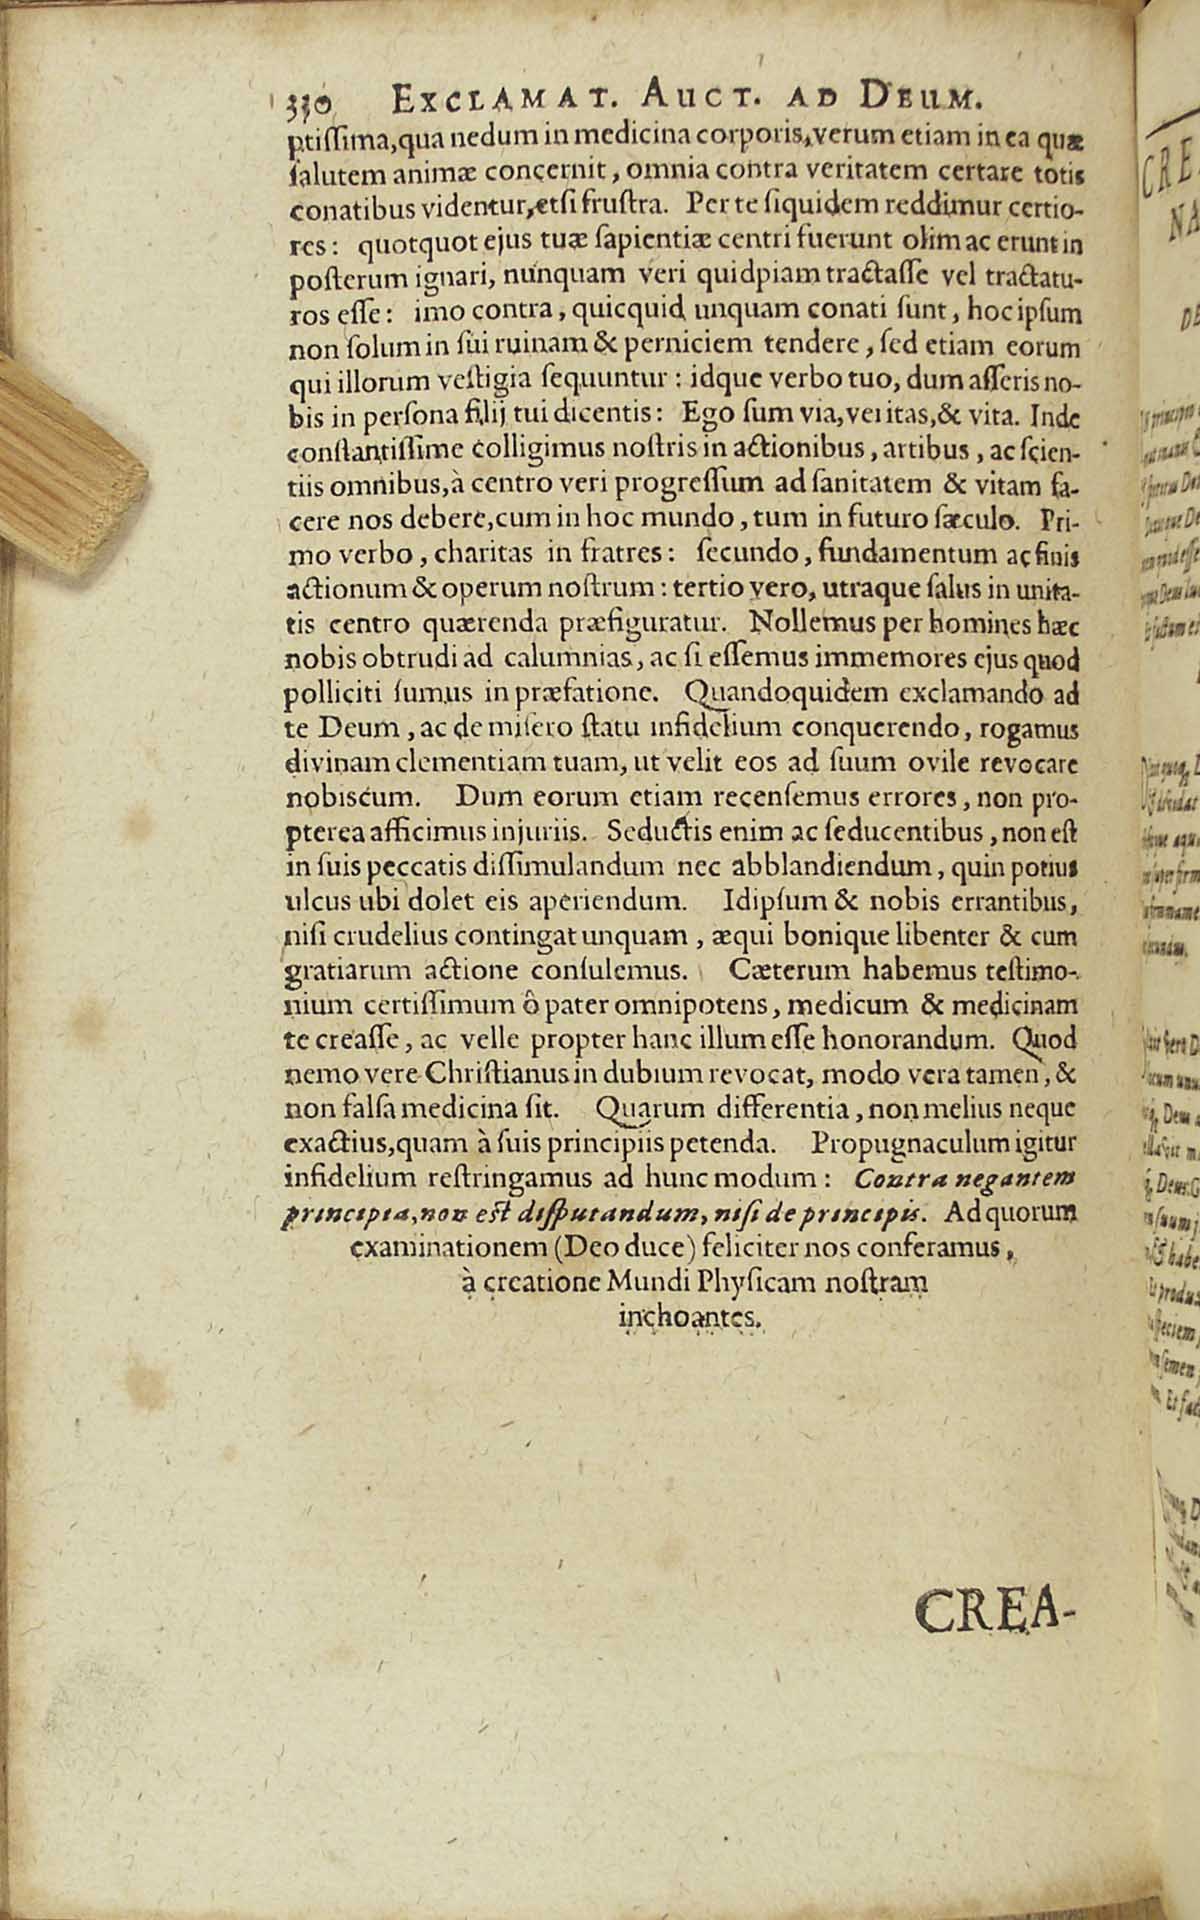 330 EXCLAMAT. AUCT. AD DEUM.
ptissima, qua nedum in medicina corporis, verum etiam in ea quæ
salutem animæ concernit, omnia contra veritatem certare totis
conatibus videntur, etsi frustra. Per te siquidem reddimur certio-
res: quotquot ejus tuæ sapientiæ centri fuerunt olim ac erunt in
posterum ignari, nunquam veri quidpiam tractasse vel tractatu-
ros esse: imo contra, quicquid unquam conati sunt, hoc ipsum
non solum in sui ruinam & perniciem tendere, sed etiam eorum
qui illorum vestigia sequuntur: idque verbo tuo, dum asseris no-
bis in persona filij tui dicentis: Ego sum via, veritas, & vita. Inde
constantissime colligimus nostris in actionibus, artibus, ac scien-
tiis omnibus, à centro veri progressum ad sanitatem & vitam fa-
cere nos debere, cum in hoc mundo, tum in futuro sæculo. Pri-
mo verbo, charitas in fratres: secundo, fundamentum ac finis
actionum & operum nostrum: tertio vero, utraque salus in unita-
tis centro quærenda præfiguratur. Nollemus per homines hæc
nobis obtrudi ad calumnias, ac si essemus immemores ejus quod
polliciti sumus in præfatione. Quandoquidem exclamando ad
te Deum, ac de misero statu infidelium conquerendo, rogamus
divinam clementiam tuam, ut velit eos ad suum ovile revocare
nobiscum. Dum eorum etiam recensemus errores, non pro-
pterea afficimus injuriis. Seductis enim ac seducentibus, non est
in suis peccatis dissimulandum nec abblandiendum, quin potius
ulcus ubi dolet eis aperiendum. Idipsum & nobis errantibus,
nisi crudelius contingat unquam, æqui bonique libenter & cum
gratiarum actione consulemus. Cæterum habemus testimo-
nium certissimum ô pater omnipotens, medicum & medicinam
te creasse, ac velle propter hanc illum esse honorandum. Quod
nemo vere Christianus in dubium revocat, modo vera tamen, &
non falsa medicina sit. Quarum differentia, non melius neque
exactius, quam à suis principiis petenda. Propugnaculum igitur
infidelium restringamus ad hunc modum: Contra negantem
principia, non est disputandum, nisi de principis. Ad quorum
examinationem (Deo duce) feliciter nos conferamus,
à creatione Mundi Physicam nostram
inchoantes.
CREA-